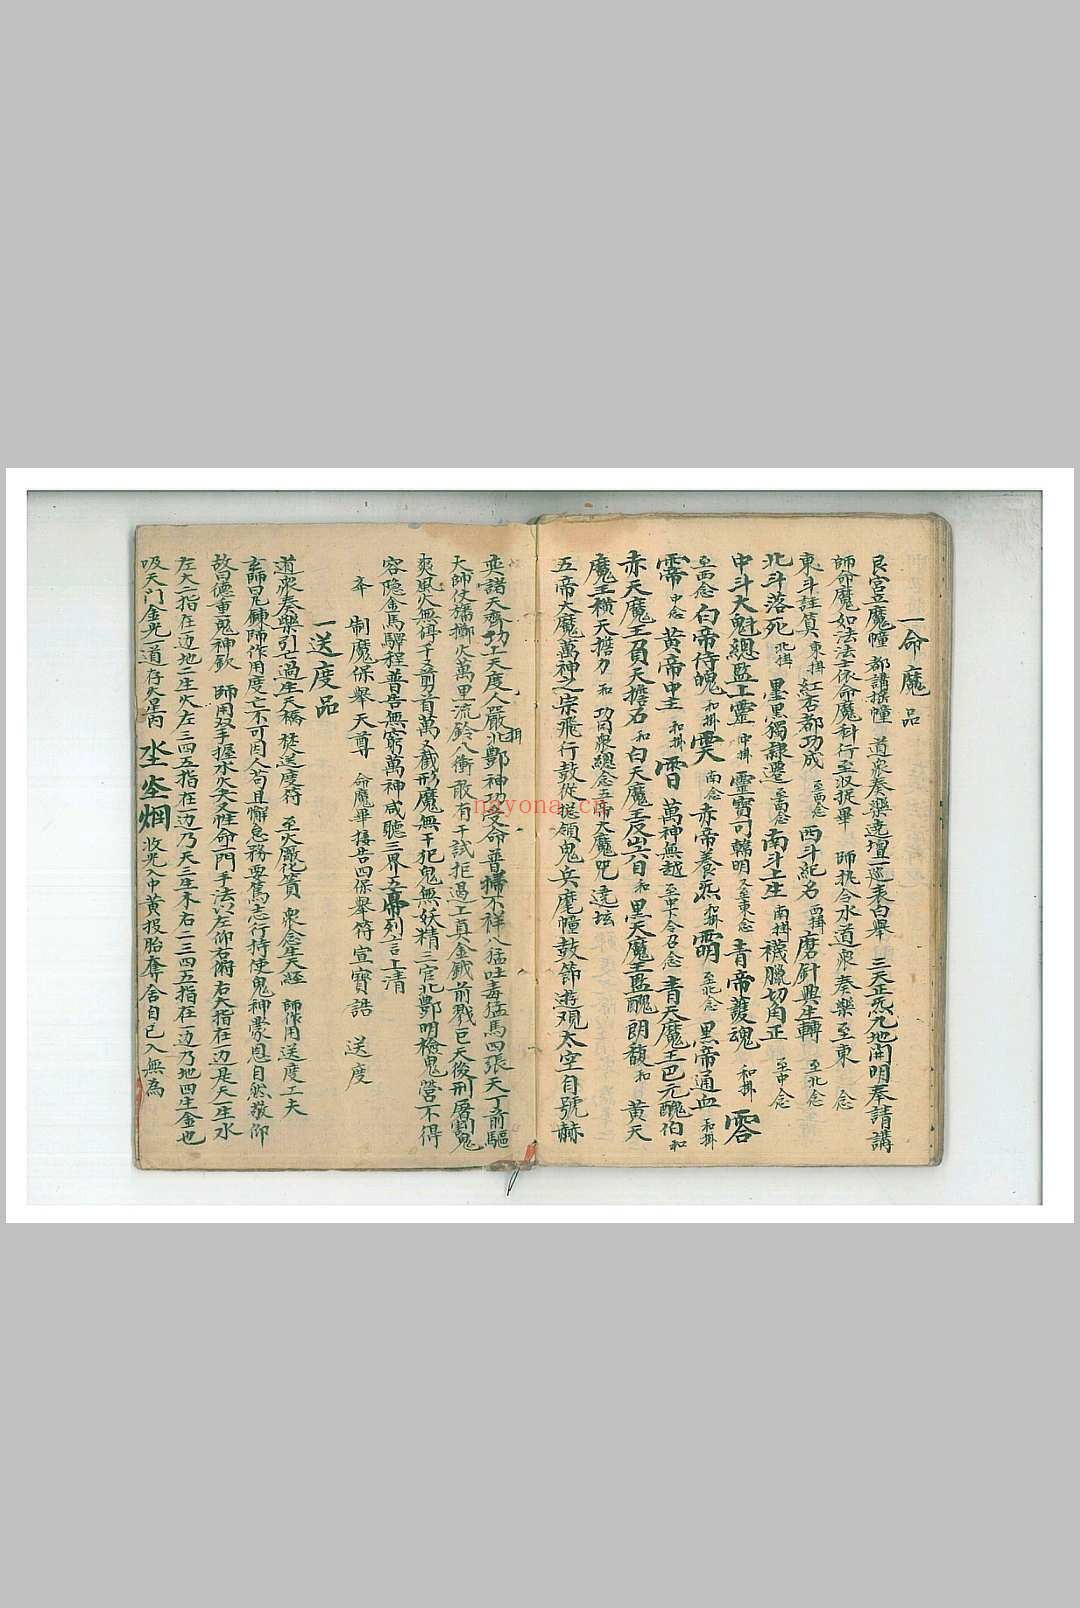 一命魔品
艮宮立魔幢 都講撰幢 道眾奏樂遶壇一巡表白舉 三天正炁九地開明奉請講
師命魔如法法士依命魔科行至収捉畢 師執令水道眾奏樂至東 念
東斗註筭 東掛 紅杏都功成 至西念 西斗紀名 西掛 磨針興生轉 至北念
北斗落死 北掛 墨黑獨隸遷 至南念 南斗上生 南掛 襪臘切角正 至中念
中斗大魁總監上靈 中掛 靈寶可韓明 又至東念 青帝護魂 和掛 霝
至西念 白帝侍魄 和掛 南念 赤帝養炁 和掛 至北念 黑帝通血 和掛
中念 黃帝中主 和掛 萬神無越 至中下令召念 青天魔王巴元醜伯 和
赤天魔王負天擔石 和 白天魔王反山六目 和 黑天魔王監醜朗馥 和 黃天
魔王橫天擔力 和 功曹眾總念五帝大魔咒 遶坛
五帝大魔萬神之宗飛行鼓從總領鬼兵麾幢鼓節遊观太空自號赫
奕諸天齊功上天度人嚴北酆神功受命普掃不祥八猛吐毒猛馬四張天丁前驅
大師仗旛擲火萬里流鈴八衝敢有干試拒過上真金鉞前戮巨天後刑屠割鬼
爽風火無停千千截首萬万截形魔無干犯鬼無妖精三官北酆明檢鬼營不得
容隐金馬驛程普告無窮萬神咸聽三界五帝列言上清
辛 制魔保舉天尊 命魔畢接告四保舉符宣寶誥 送度
一送度品
道眾奏樂引亡過生天橋 焚送度符 至火殿化質 眾念生天經 師作用送度工夫
玄師曰凡鍊師作用度亡不可因人苟且懈怠務要篤志行持使鬼神蒙恩自然敬仰
故曰德重鬼神欽 師用双手握水火交乂性命二門手法以左仰右俯右大指在边是天一生水
左大二指在边地二生火左三四五指在一边乃天三生木右二三四五指在一边乃地四生金也
吸天門金光一道存火星內 烟 收光入中黃投胎奪舍自已入無為